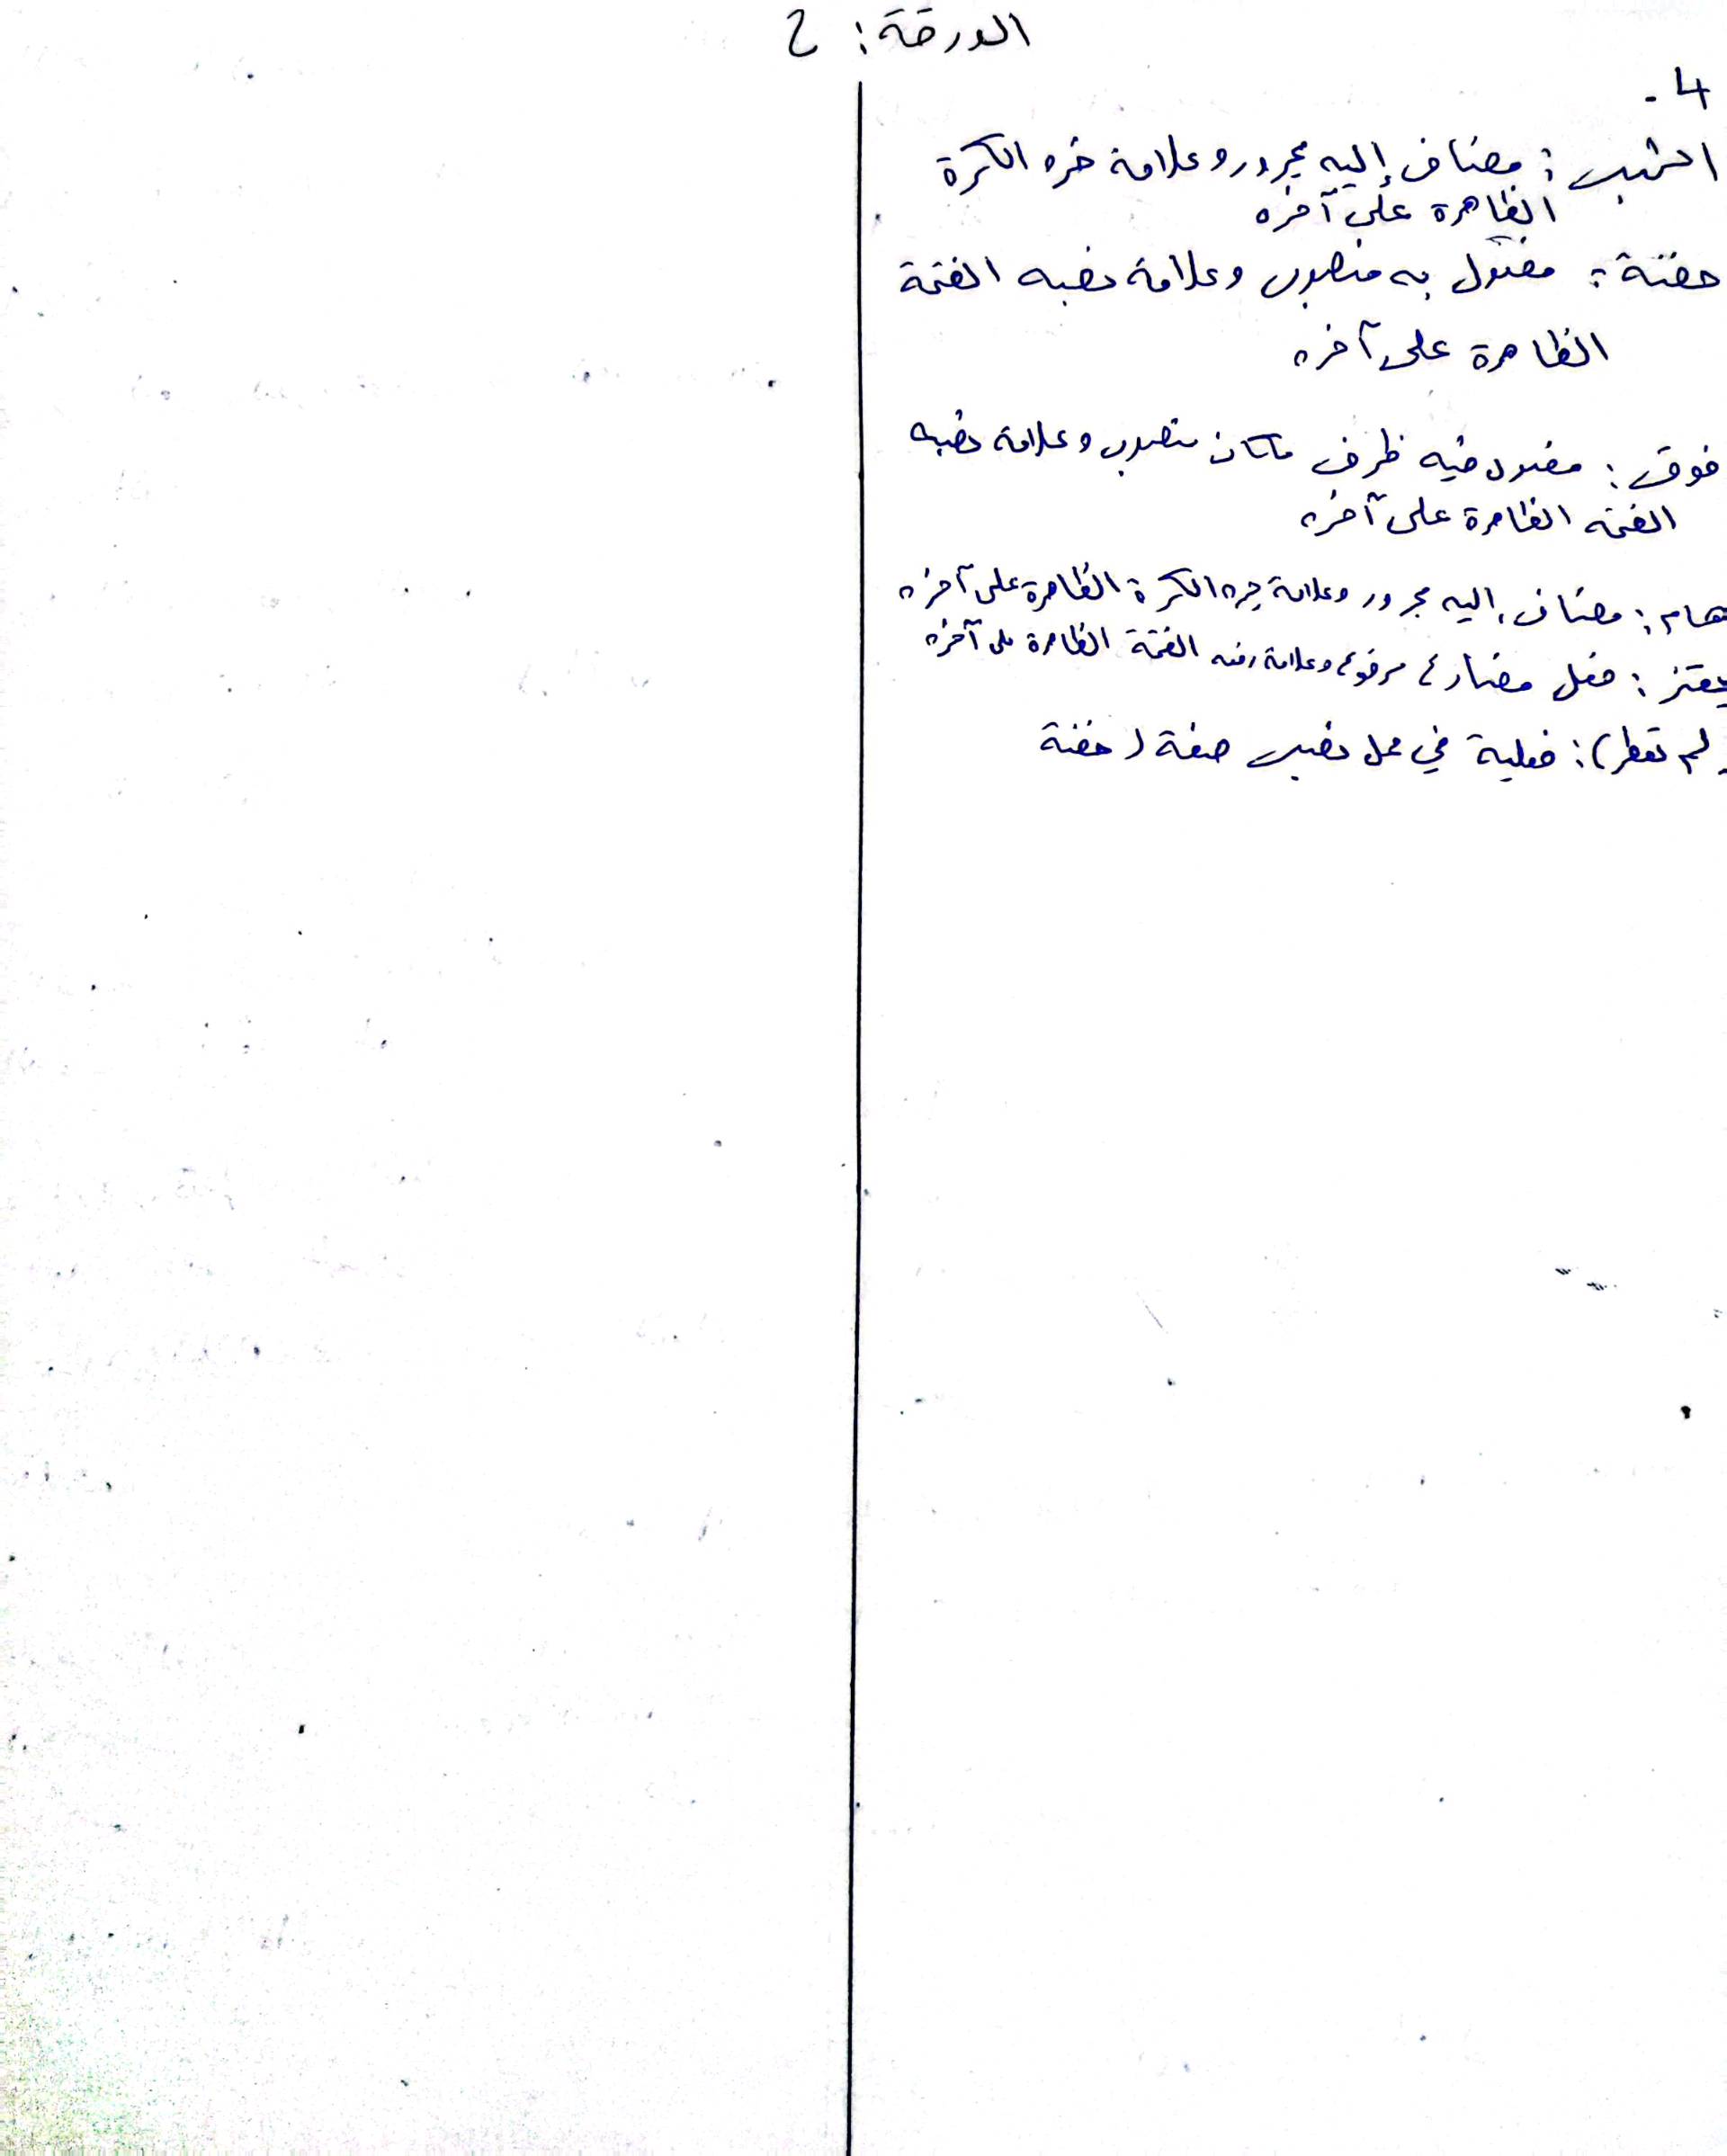 الورقة: 2
4 -
الشيب: مضاف إليه مجرور وعلامة جره الكسرة
الظاهرة على آخره
حفنة: مفعول به منصوب وعلامة نصبه الفتحة
الظاهرة على آخره
فوق: مفعول فيه ظرف مكان منصوب وعلامة نصبه
الفتحة الظاهرة على آخره
هام: مضاف إليه مجرور وعلامة جره الكسرة الظاهرة على آخره
فعل مضارع مرفوع وعلامة رفعه الضمة الظاهرة على آخره
لم تمطر): فعلية في محل نصب صفة لحفنة